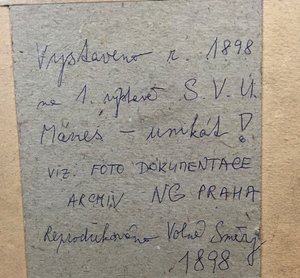 Vystaveno r. 1898
na 1. výstavě S. V. U.
Mánes – unikát !
VIZ. FOTO DOKUMENTACE
ARCHIV NG PRAHA
Reprodukováno Volné Směry
1898